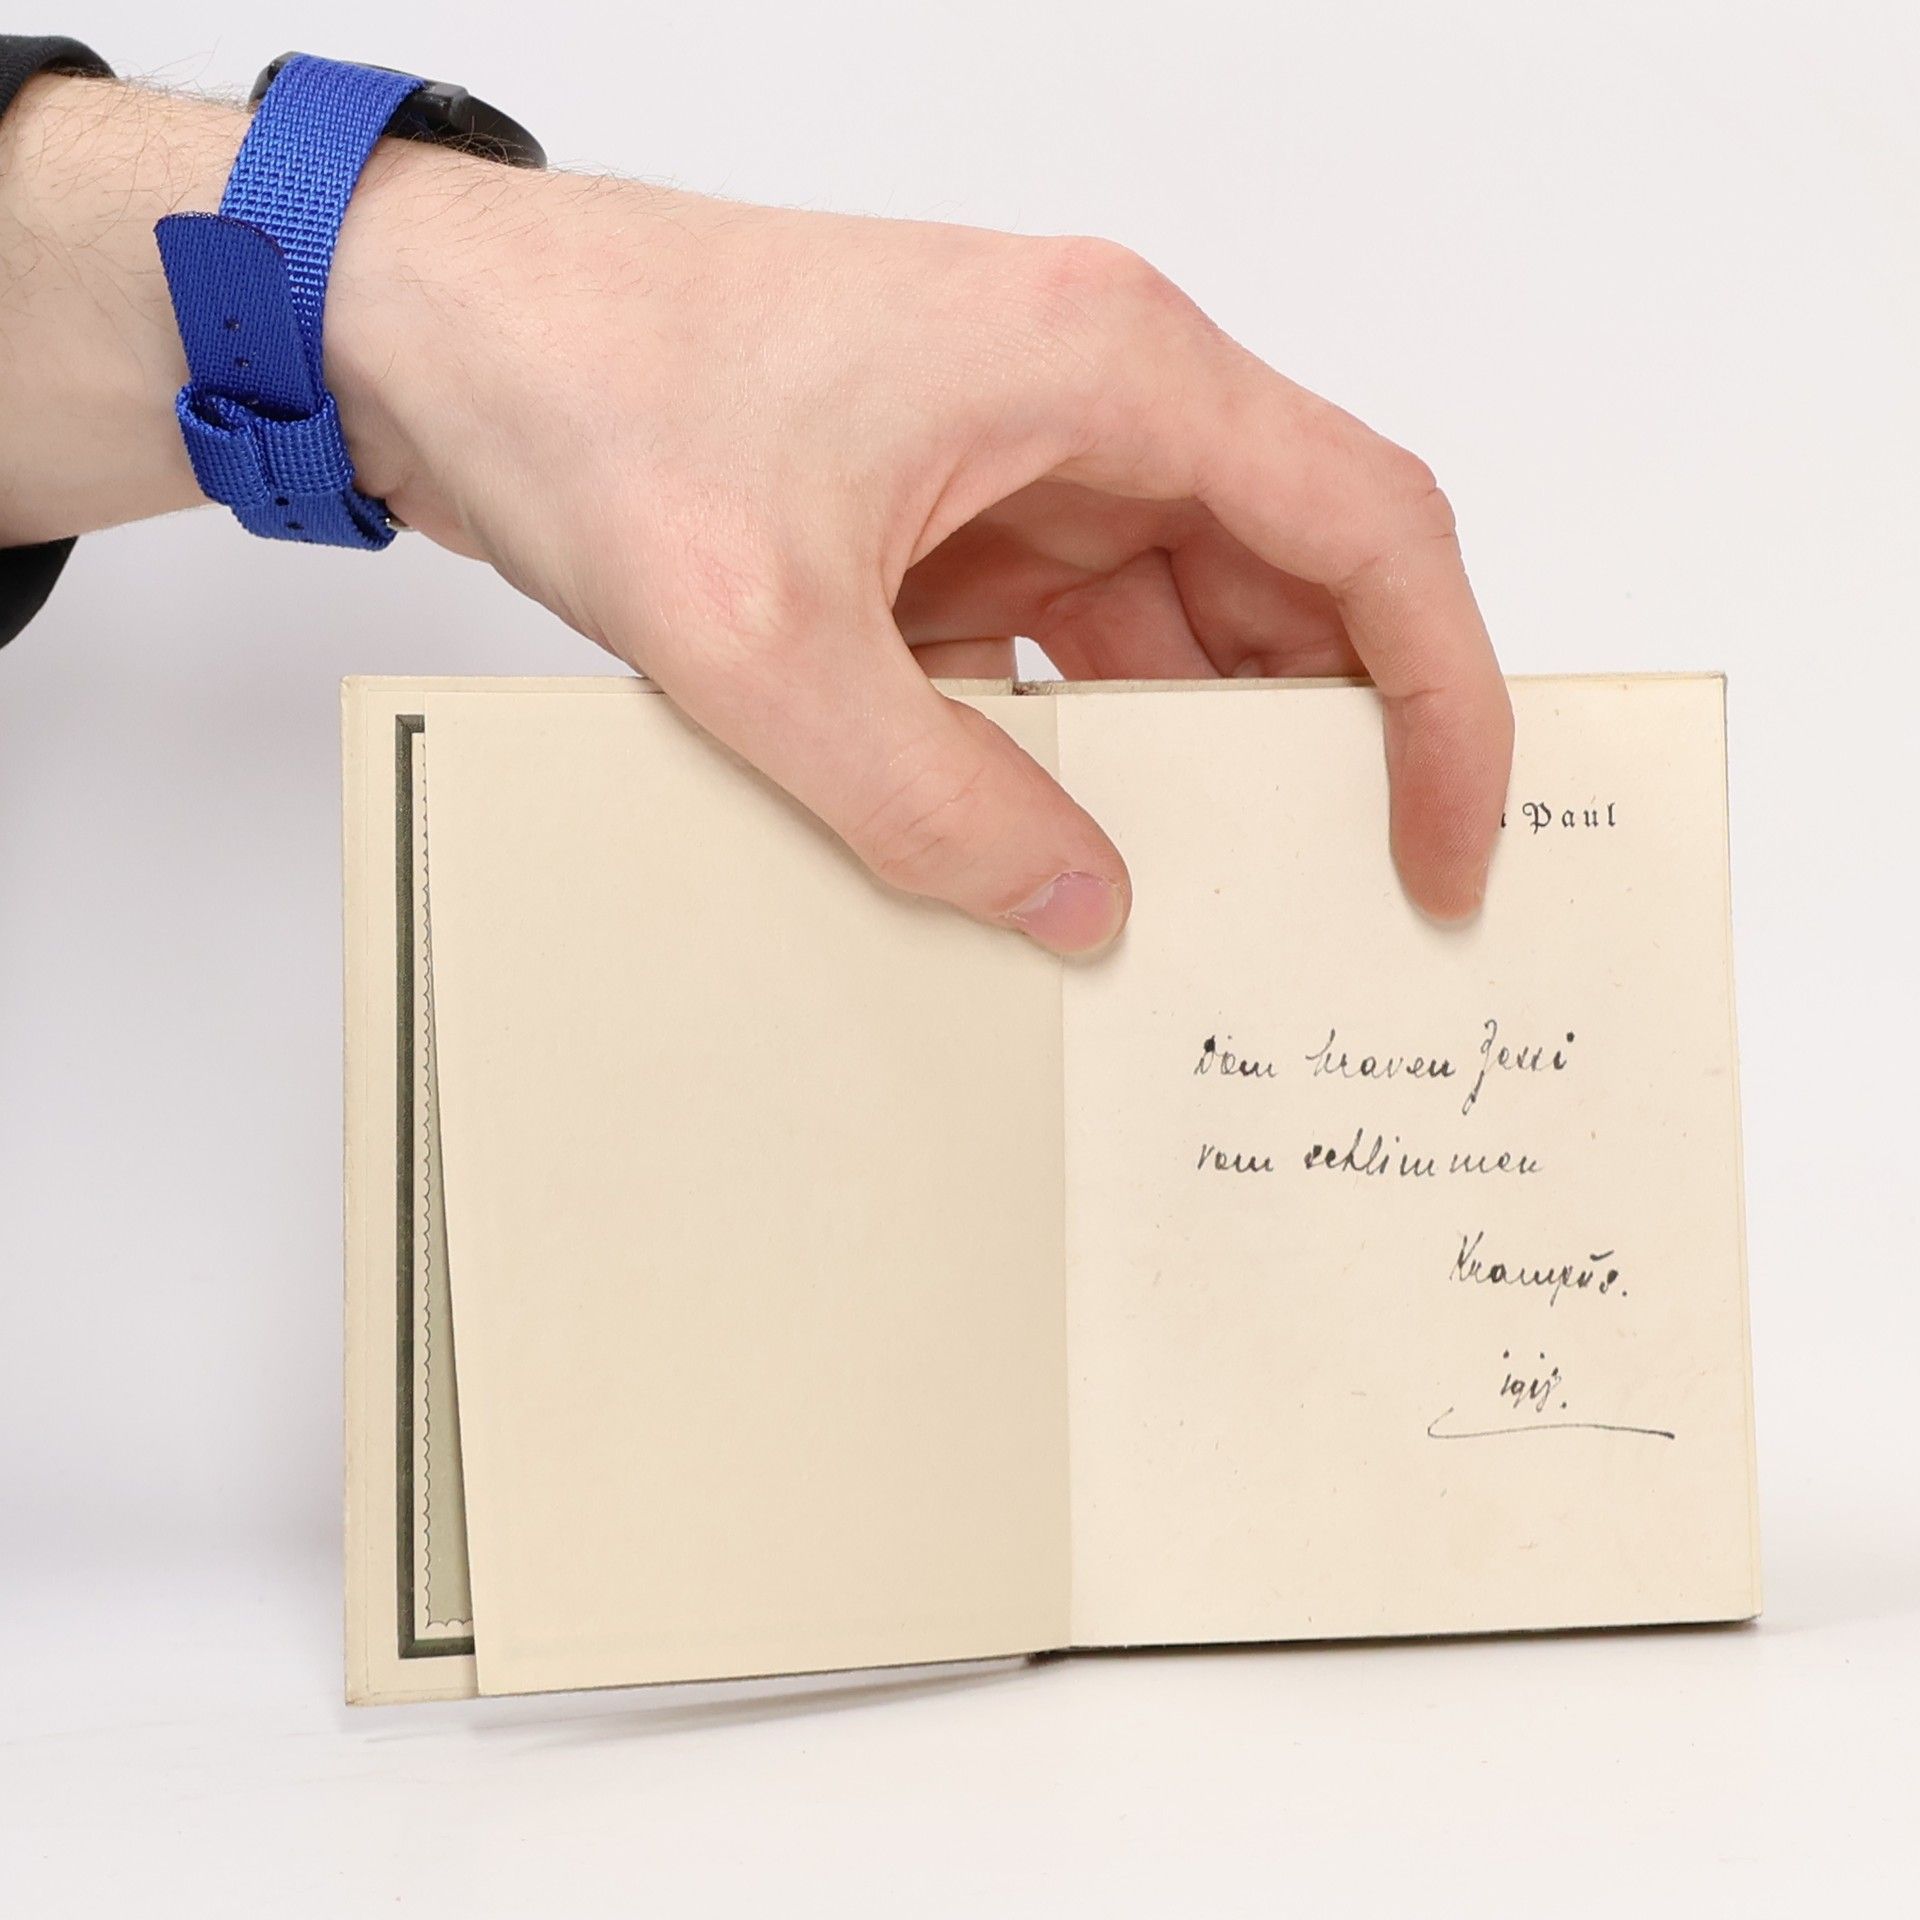 Paul
Dem braven Jessi
vom schlimmen
Krampus.